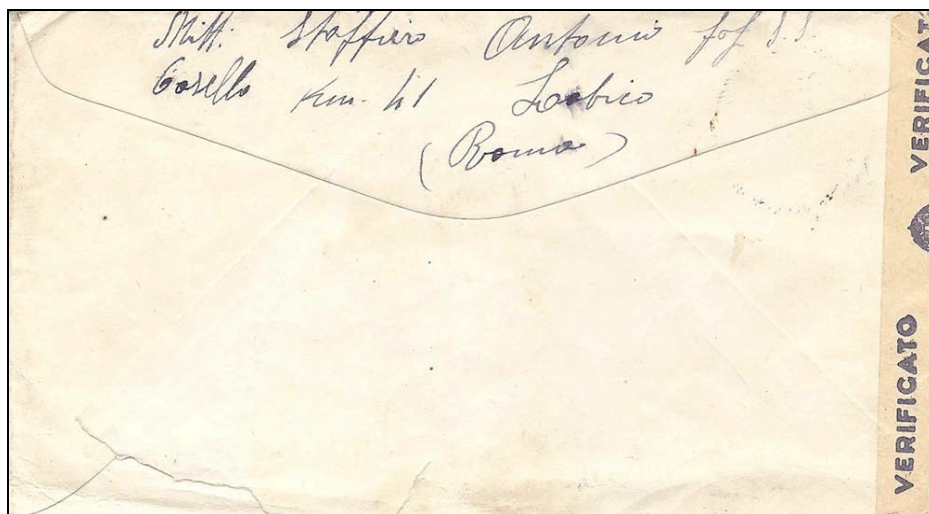 Mitt: Staffiero Antonio
Casello Km. 41 Labico
(Roma)
VERIFICATO
VERIFICATO